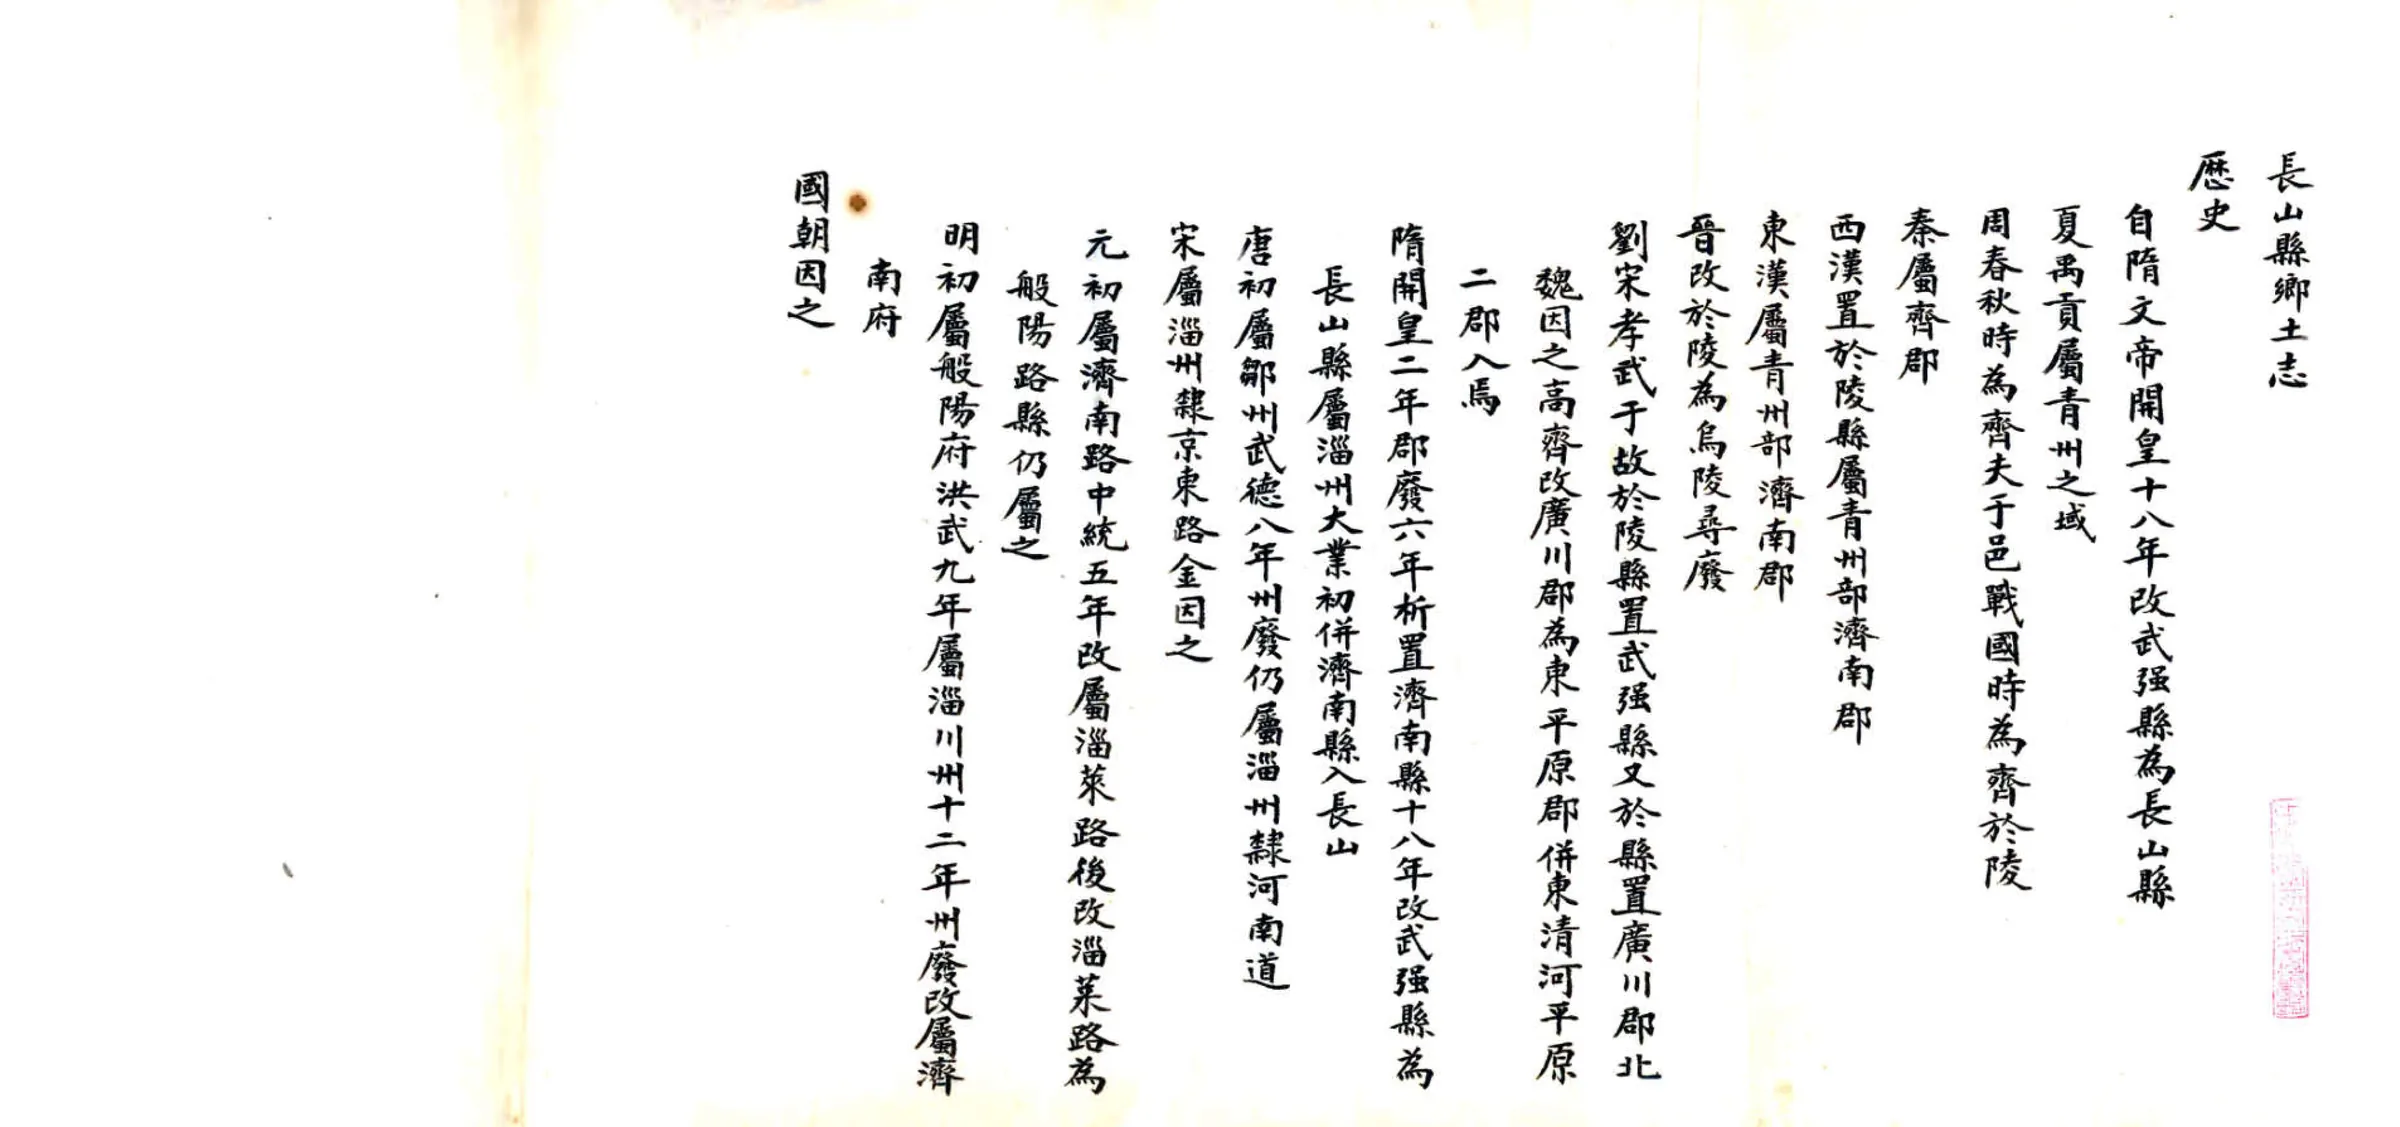 長山縣鄉土志
歷史
自隋文帝開皇十八年改武强縣為長山縣
夏禹貢屬青州之域
周春秋時為齊夫于邑戰國時為齊於陵
秦屬齊郡
西漢置於陵縣屬青州部濟南郡
東漢屬青州部濟南郡
晉改於陵為烏陵尋廢
劉宋孝武于故於陵縣置武强縣又於縣置廣川郡北
魏因之高齊改廣川郡為東平原郡併東清河平原
二郡入焉
隋開皇二年郡廢六年析置濟南縣十八年改武强縣為
長山縣屬淄州大業初併濟南縣入長山
唐初屬鄒州武德八年州廢仍屬淄州隸河南道
宋屬淄州隸京東路金因之
元初屬濟南路中統五年改屬淄萊路後改淄萊路為
般陽路縣仍屬之
明初屬般陽府洪武九年屬淄川州十二年州廢改屬濟
南府
國朝因之